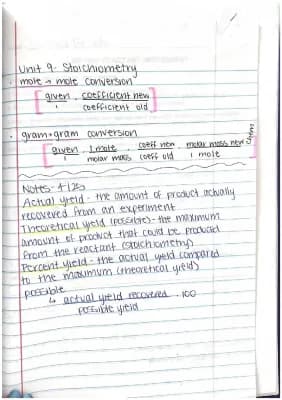 Unit 9- Stoichiometry
· mole → mole conversion
given . coefficient new
1 coefficient old
· gram → gram conversion
given . 1 mole . coeff new . molar mass new
1 molar mass coeff old 1 mole
Notes- 4/25
Actual yield - the amount of product actually
recovered from an experiment
Theoretical yield (possible) - the maximum
amount of product that could be produced
from the reactant (stoichiometry)
Percent yield - the actual yield compared
to the maximum (theoretical yield)
possible
↳ actual yield recovered . 100
possible yield